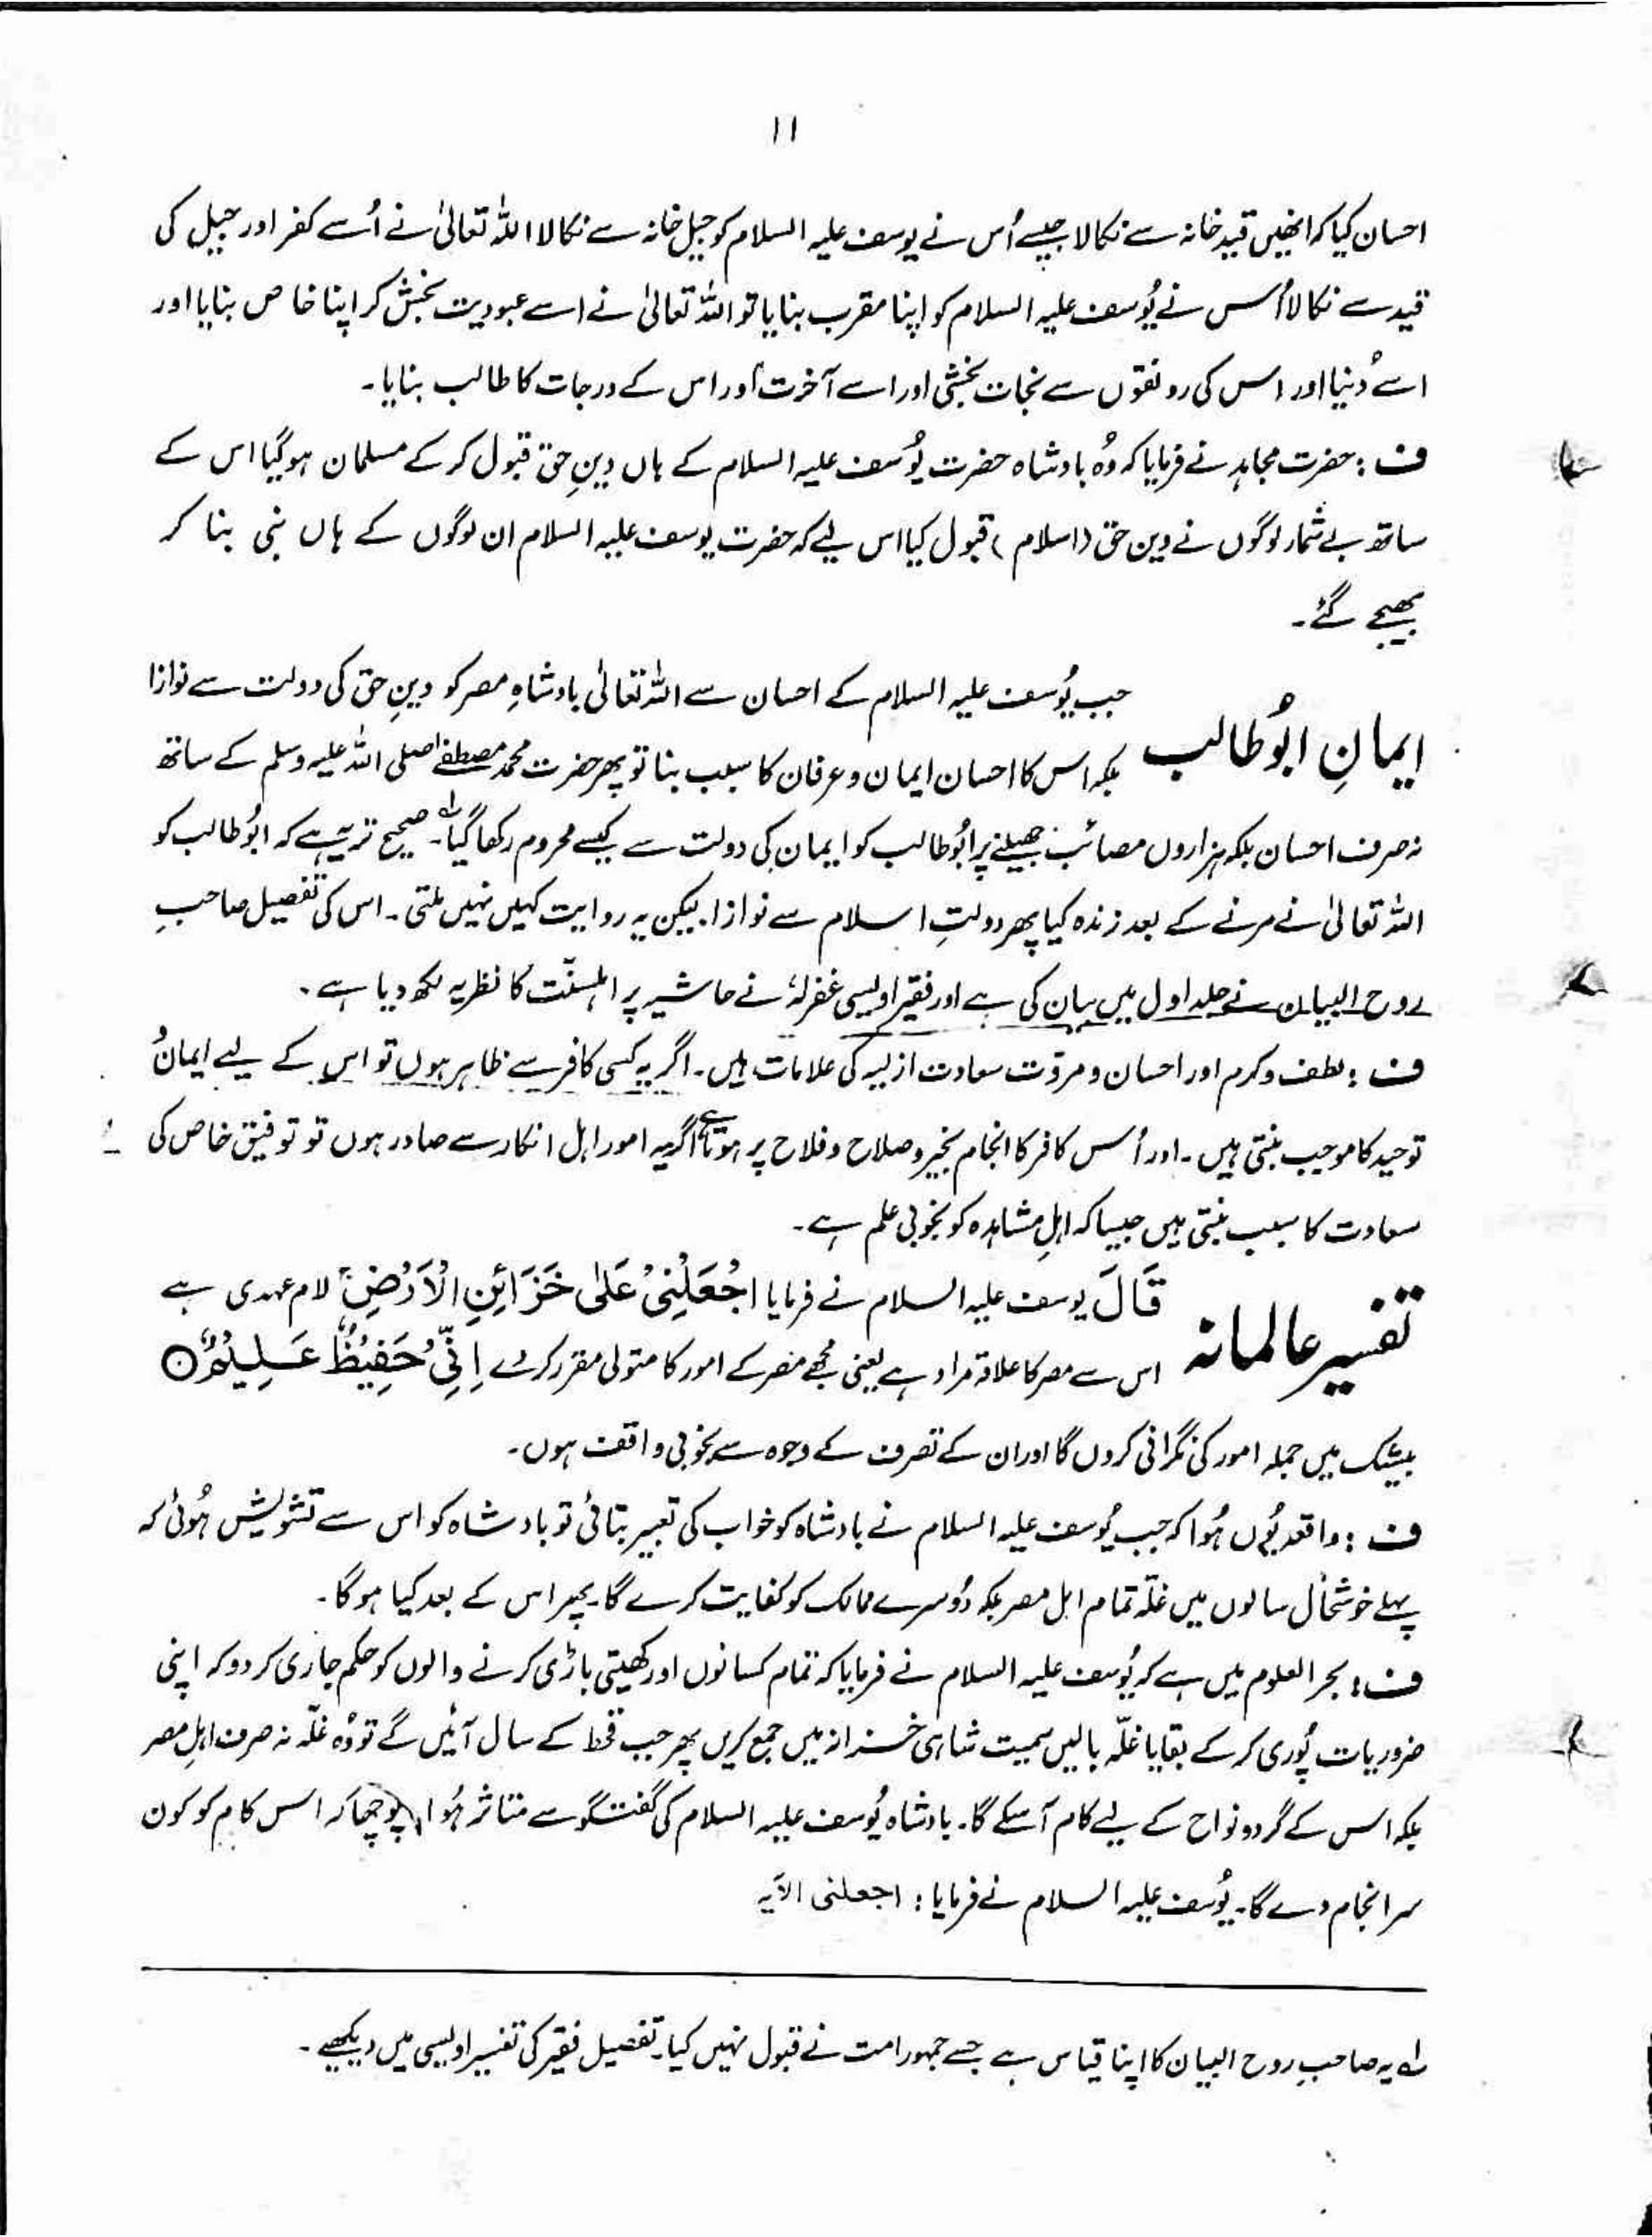 ۱۱
احسان کیا کہ انھیں قید خانہ سے نکالا جیسے اُس نے یوسف علیہ السلام کو جیل خانہ سے نکالا اللہ تعالیٰ نے اُسے کفر اور جہل کی
قید سے نکالا اُس نے یُوسف علیہ السلام کو اپنا مقرب بنایا تو اللہ تعالیٰ نے اسے عبودیت بخش کر اپنا خاص بنایا اور
اسے دُنیا اور اس کی رونقوں سے نجات بخشی اور اسے آخرت اور اس کے درجات کا طالب بنایا۔
ف : حضرت مجاہد نے فرمایا کہ وُہ بادشاہ حضرت یُوسف علیہ السلام کے ہاں دینِ حق قبول کر کے مسلمان ہو گیا اس کے
ساتھ بے شمار لوگوں نے دین حق (اسلام) قبول کیا اس لیے کہ حضرت یوسف علیہ السلام ان لوگوں کے ہاں نبی بنا کر
بھیجے گئے۔
ایمانِ ابُوطالب
جب یُوسف علیہ السلام کے احسان سے اللہ تعالیٰ بادشاہِ مصر کو دینِ حق کی دولت سے نوازا
بلکہ اس کا احسان ایمان و عرفان کا سبب بنا تو پھر حضرت محمد مصطفےٰ صلی اللہ علیہ وسلم کے ساتھ
نہ صرف احسان بلکہ ہزاروں مصائب جھیلنے پر ابُوطالب کو ایمان کی دولت سے کیسے محروم رکھا گیا۔ لہ صحیح تر یہ ہے کہ ابُوطالب کو
اللہ تعالیٰ نے مرنے کے بعد زندہ کیا پھر دولتِ اسلام سے نوازا۔ لیکن یہ روایت کہیں نہیں ملتی۔ اس کی تفصیل صاحبِ
روح البیان نے جلد اول میں بیان کی ہے اور فقیر اویسی غفرلہٗ نے حاشیہ پر اہلسنّت کا نظریہ لکھ دیا ہے۔
ف : لطف و کرم اور احسان و مروّت سعادت ازلیہ کی علامات ہیں۔ اگر یہ کسی کافر سے ظاہر ہوں تو اس کے لیے ایمان و
توحید کا موجب بنتی ہیں۔ اور اُس کافر کا انجام بخیر و صلاح و فلاح پر ہوتا ہے اگر یہ امور اہل انکار سے صادر ہوں تو توفیق خاص کی
سعادت کا سبب بنتی ہیں جیسا کہ اہلِ مشاہدہ کو بخوبی علم ہے۔
تفسیر عالمانہ
قَالَ یوسف علیہ السلام نے فرمایا اجْعَلْنِیْ عَلٰی خَزَائِنِ الْاَرْضِ ۚ لام عہدی ہے
اس سے مصر کا علاقہ مراد ہے یعنی مجھے مصر کے امور کا متولی مقرر کر لے اِنِّیْ حَفِیْظٌ عَلِیْمٌ ۝
بیشک میں جملہ امور کی نگرانی کروں گا اور ان کے تصرف کے وجوہ سے بخوبی واقف ہوں۔
ف : واقعہ یُوں ہُوا کہ جب یُوسف علیہ السلام نے بادشاہ کو خواب کی تعبیر بتائی تو بادشاہ کو اس سے تشویش ہُوئی کہ
پہلے خوشحال سالوں میں غلّہ تمام اہل مصر بلکہ دُوسرے ممالک کو کفایت کرے گا۔ پھر اس کے بعد کیا ہو گا۔
ف : بحر العلوم میں ہے کہ یُوسف علیہ السلام نے فرمایا کہ تمام کسانوں اور کھیتی باڑی کرنے والوں کو حکم جاری کر دو کہ اپنی
ضروریات پُوری کر کے بقایا غلّہ بالیں سمیت شاہی خزانہ میں جمع کریں پھر جب قحط کے سال آئیں گے تو وُہ غلّہ نہ صرف اہلِ مصر
بلکہ اس کے گرد و نواح کے لیے کام آ سکے گا۔ بادشاہ یُوسف علیہ السلام کی گفتگو سے متاثر ہُوا، پوچھا کہ اس کام کو کون
سر انجام دے گا۔ یُوسف علیہ السلام نے فرمایا : اجعلنی الآیہ
لہ یہ صاحبِ روح البیان کا اپنا قیاس ہے جسے جمہور امت نے قبول نہیں کیا۔ تفصیل فقیر کی تفسیر اویسی میں دیکھیے۔